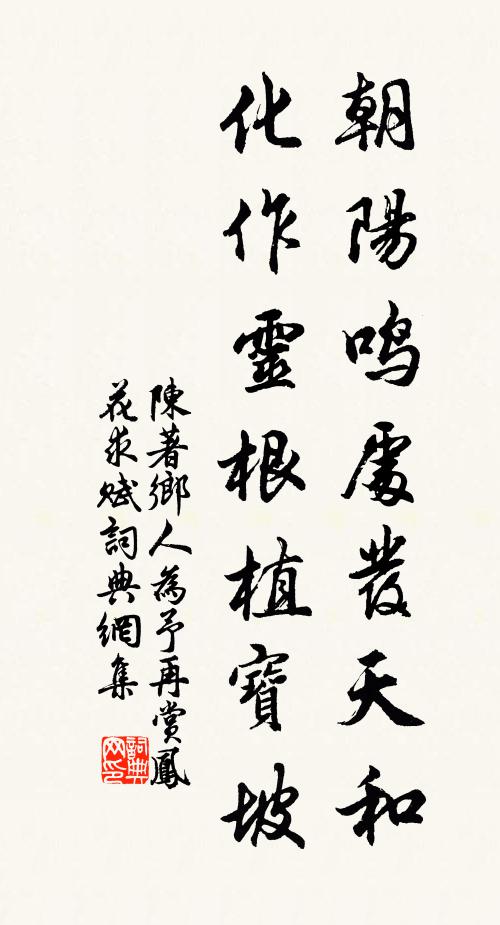 朝陽鳴處發天和
化作靈根植寶坡
陳著鄉人為予再賞鳳
花求賦詞典網集
詞典
网印